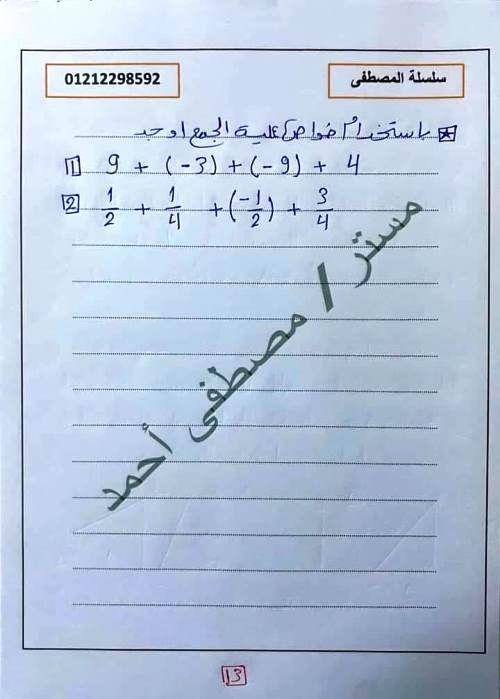 سلسلة المصطفى
01212298592
باستخدام خواص عملية الجمع اوجد
1 9 + (-3) + (-9) + 4
2 1/2 + 1/4 + (-1/2) + 3/4
مستر / مصطفى أحمد
13